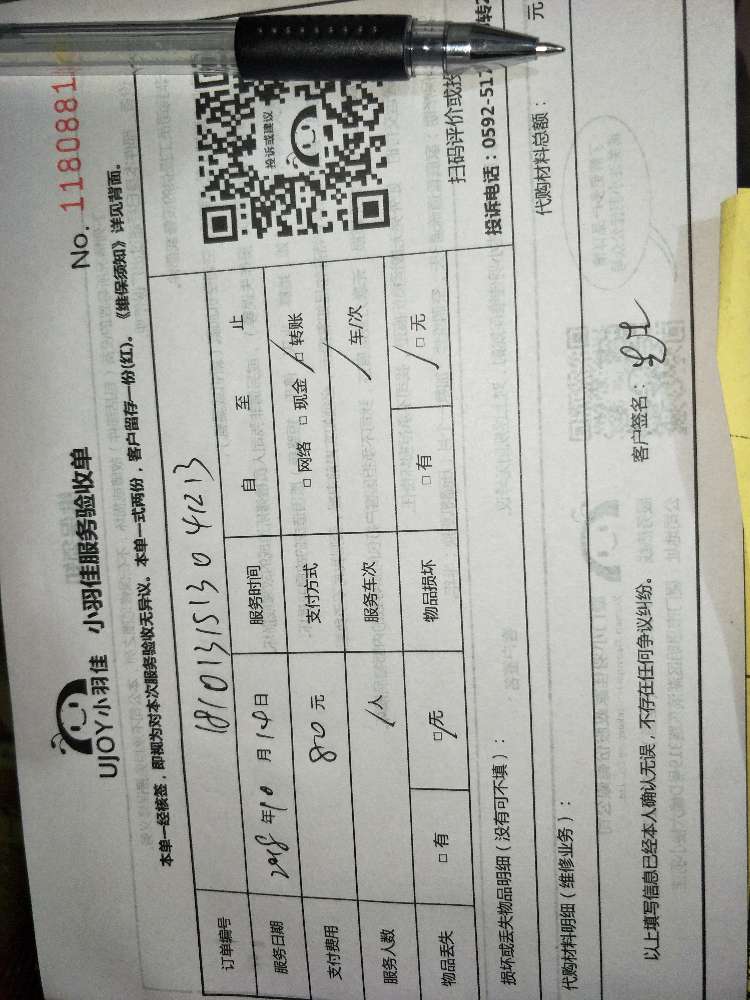 UJOY小羽佳 小羽佳服务验收单
No. 1180881
本单一经核签，即视为对本次服务验收无异议。本单一式两份，客户留存一份(红)。《维保须知》详见背面。
订单编号 181013151304 1213
服务日期 2018 年 10 月 14 日 服务时间 自 至 止
支付费用 800 元 支付方式 □ 网络 □ 现金 □ 转账
服务人数 人 服务车次 车/次
物品丢失 □ 有 □ 无 物品损坏 □ 有 □ 无
投诉或建议
扫码评价或投
投诉电话：0592-517
损坏或丢失物品明细（没有可不填）：
代购材料明细（维修业务）： 代购材料总额： 元
以上填写信息已经本人确认无误，不存在任何争议纠纷。 客户签名：